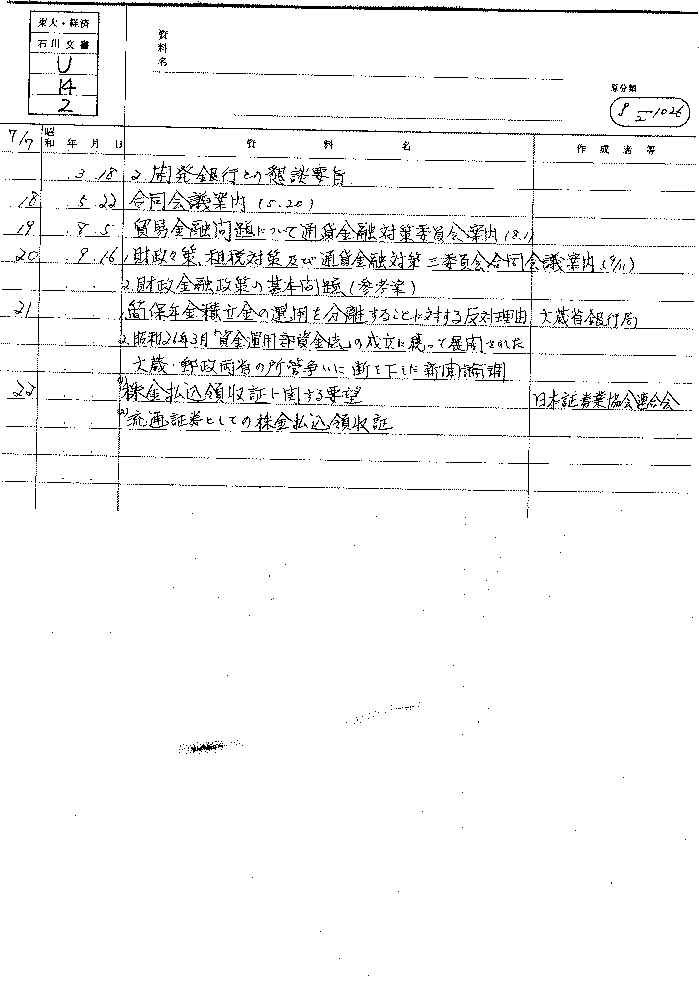 東大・経済
石川文書
U
14
2
資料名
原分類
9 Ⅱ-1026
7/7 昭和 年 月 日 資 料 名 作成者等
3 18 2. 開発銀行との懇談要旨
18 5 22 合同会議案内(5.20)
19 8 5 貿易金融問題について通貨金融対策委員会案内(8.1)
20 9 16 1. 財政々策、租税対策及び通貨金融対策三委員会合同会議案内(9/11)
2. 財政金融政策の基本問題(参考案)
21 1. 簡保年金積立金の運用を分離することに対する反対理由 大蔵省銀行局
2. 昭和26年3月「資金運用部資金法」の成立に続って展開された
大蔵・郵政両省の所管争いに断を下した新聞論調
22 (1) 株金払込領収証に関する要望 日本証券業協会連合会
(2) 流通証券としての株金払込領収証